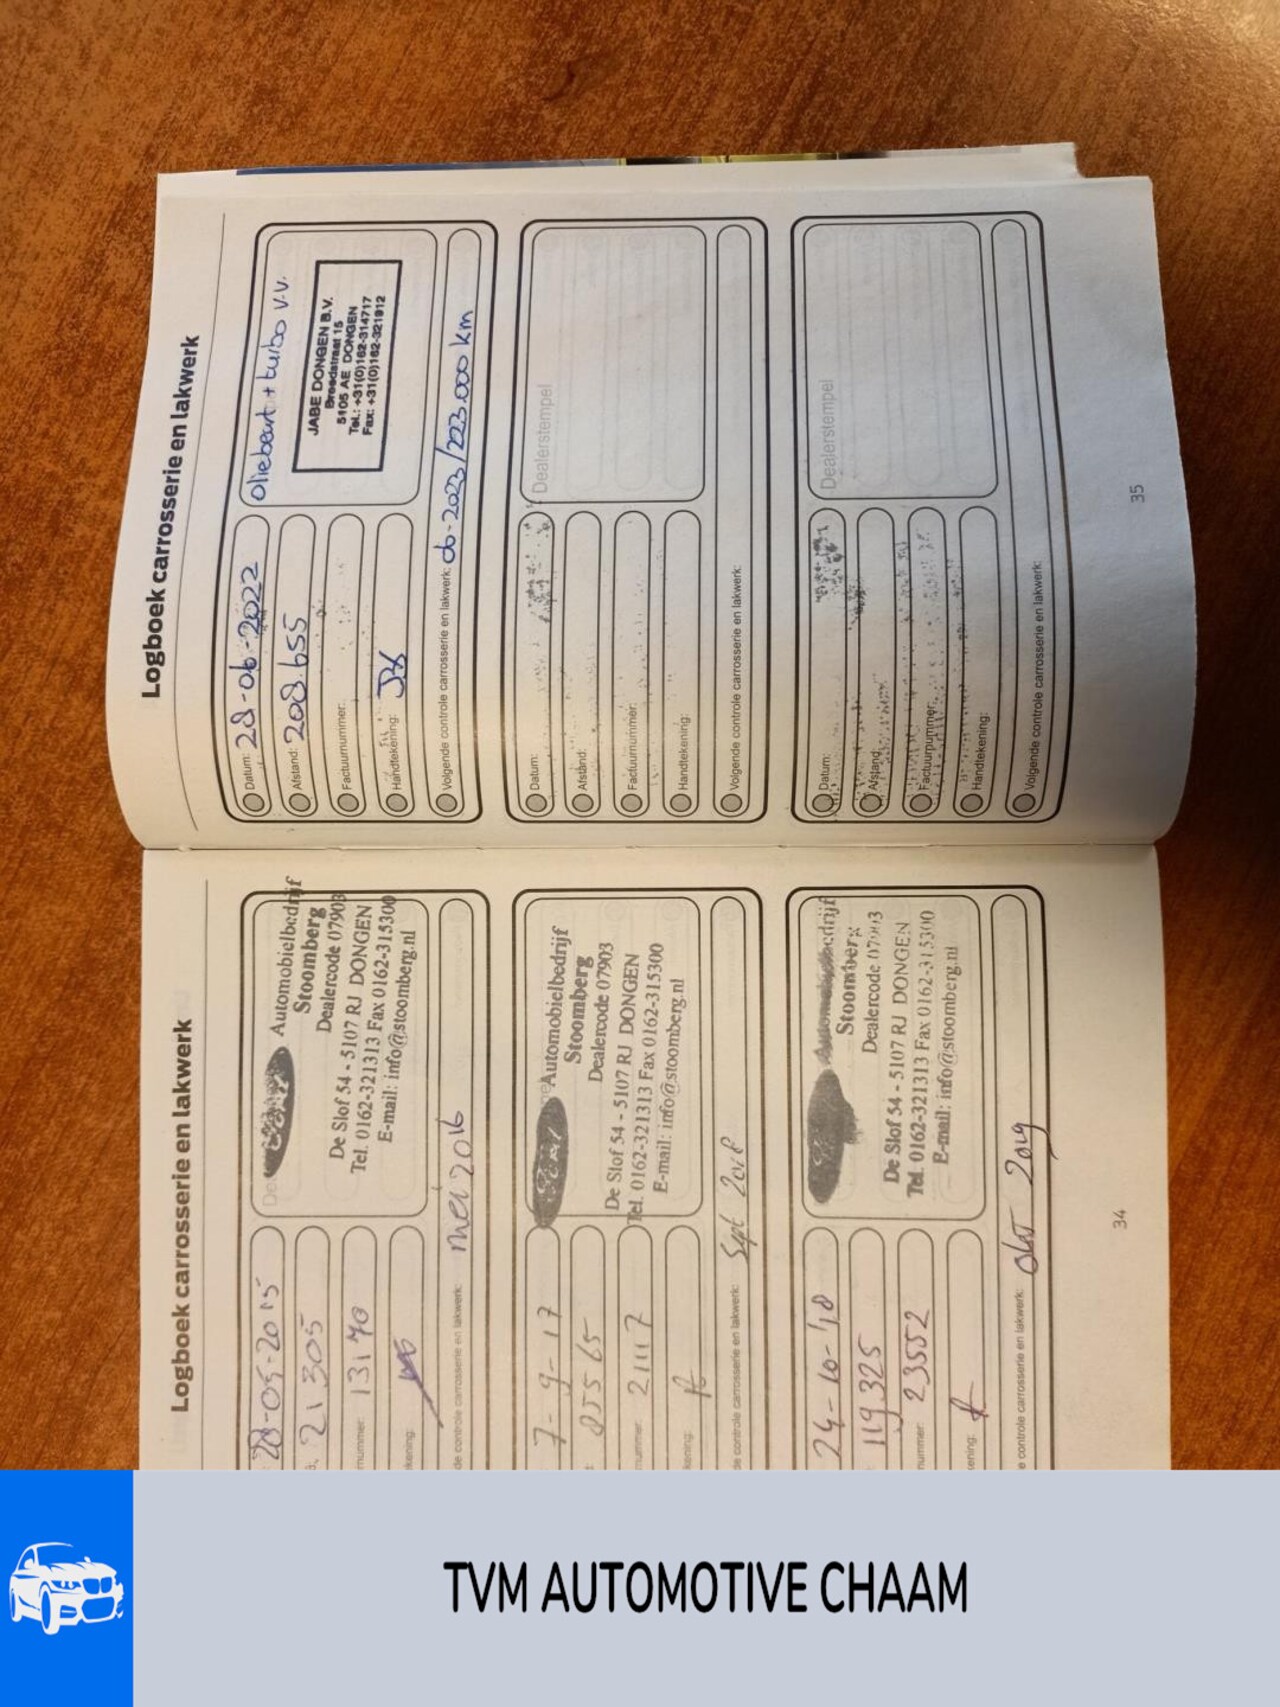 Logboek carrosserie en lakwerk
28-05-2015
21305
nummer: 13170
kening:
de controle carrosserie en lakwerk: mei 2016
Automobielbedrijf
Stoomberg
Dealercode 07903
De Slof 54 - 5107 RJ DONGEN
Tel. 0162-321313 Fax 0162-315300
E-mail: info@stoomberg.nl
7-9-17
85565
nummer: 21117
kening:
de controle carrosserie en lakwerk: Sept 2018
Automobielbedrijf
Stoomberg
Dealercode 07903
De Slof 54 - 5107 RJ DONGEN
Tel. 0162-321313 Fax 0162-315300
E-mail: info@stoomberg.nl
24-10-'18
119325
nummer: 23552
kening:
e controle carrosserie en lakwerk: Okt 2019
Stoomberg
Dealercode 07903
De Slof 54 - 5107 RJ DONGEN
Tel. 0162-321313 Fax 0162-315300
E-mail: info@stoomberg.nl
34
Logboek carrosserie en lakwerk
Datum: 28-06-2022
Afstand: 208.655
Factuurnummer:
Handtekening:
Volgende controle carrosserie en lakwerk: 06-2023/223.000 km
Oliebeurt + turbo v.v.
JABE DONGEN B.V.
Breedstraat 15
5105 AE DONGEN
Tel.: +31(0)162-314717
Fax: +31(0)162-321912
Datum:
Afstand:
Factuurnummer:
Handtekening:
Volgende controle carrosserie en lakwerk:
Dealerstempel
Datum:
Afstand:
Factuurnummer:
Handtekening:
Volgende controle carrosserie en lakwerk:
Dealerstempel
35
TVM AUTOMOTIVE CHAAM